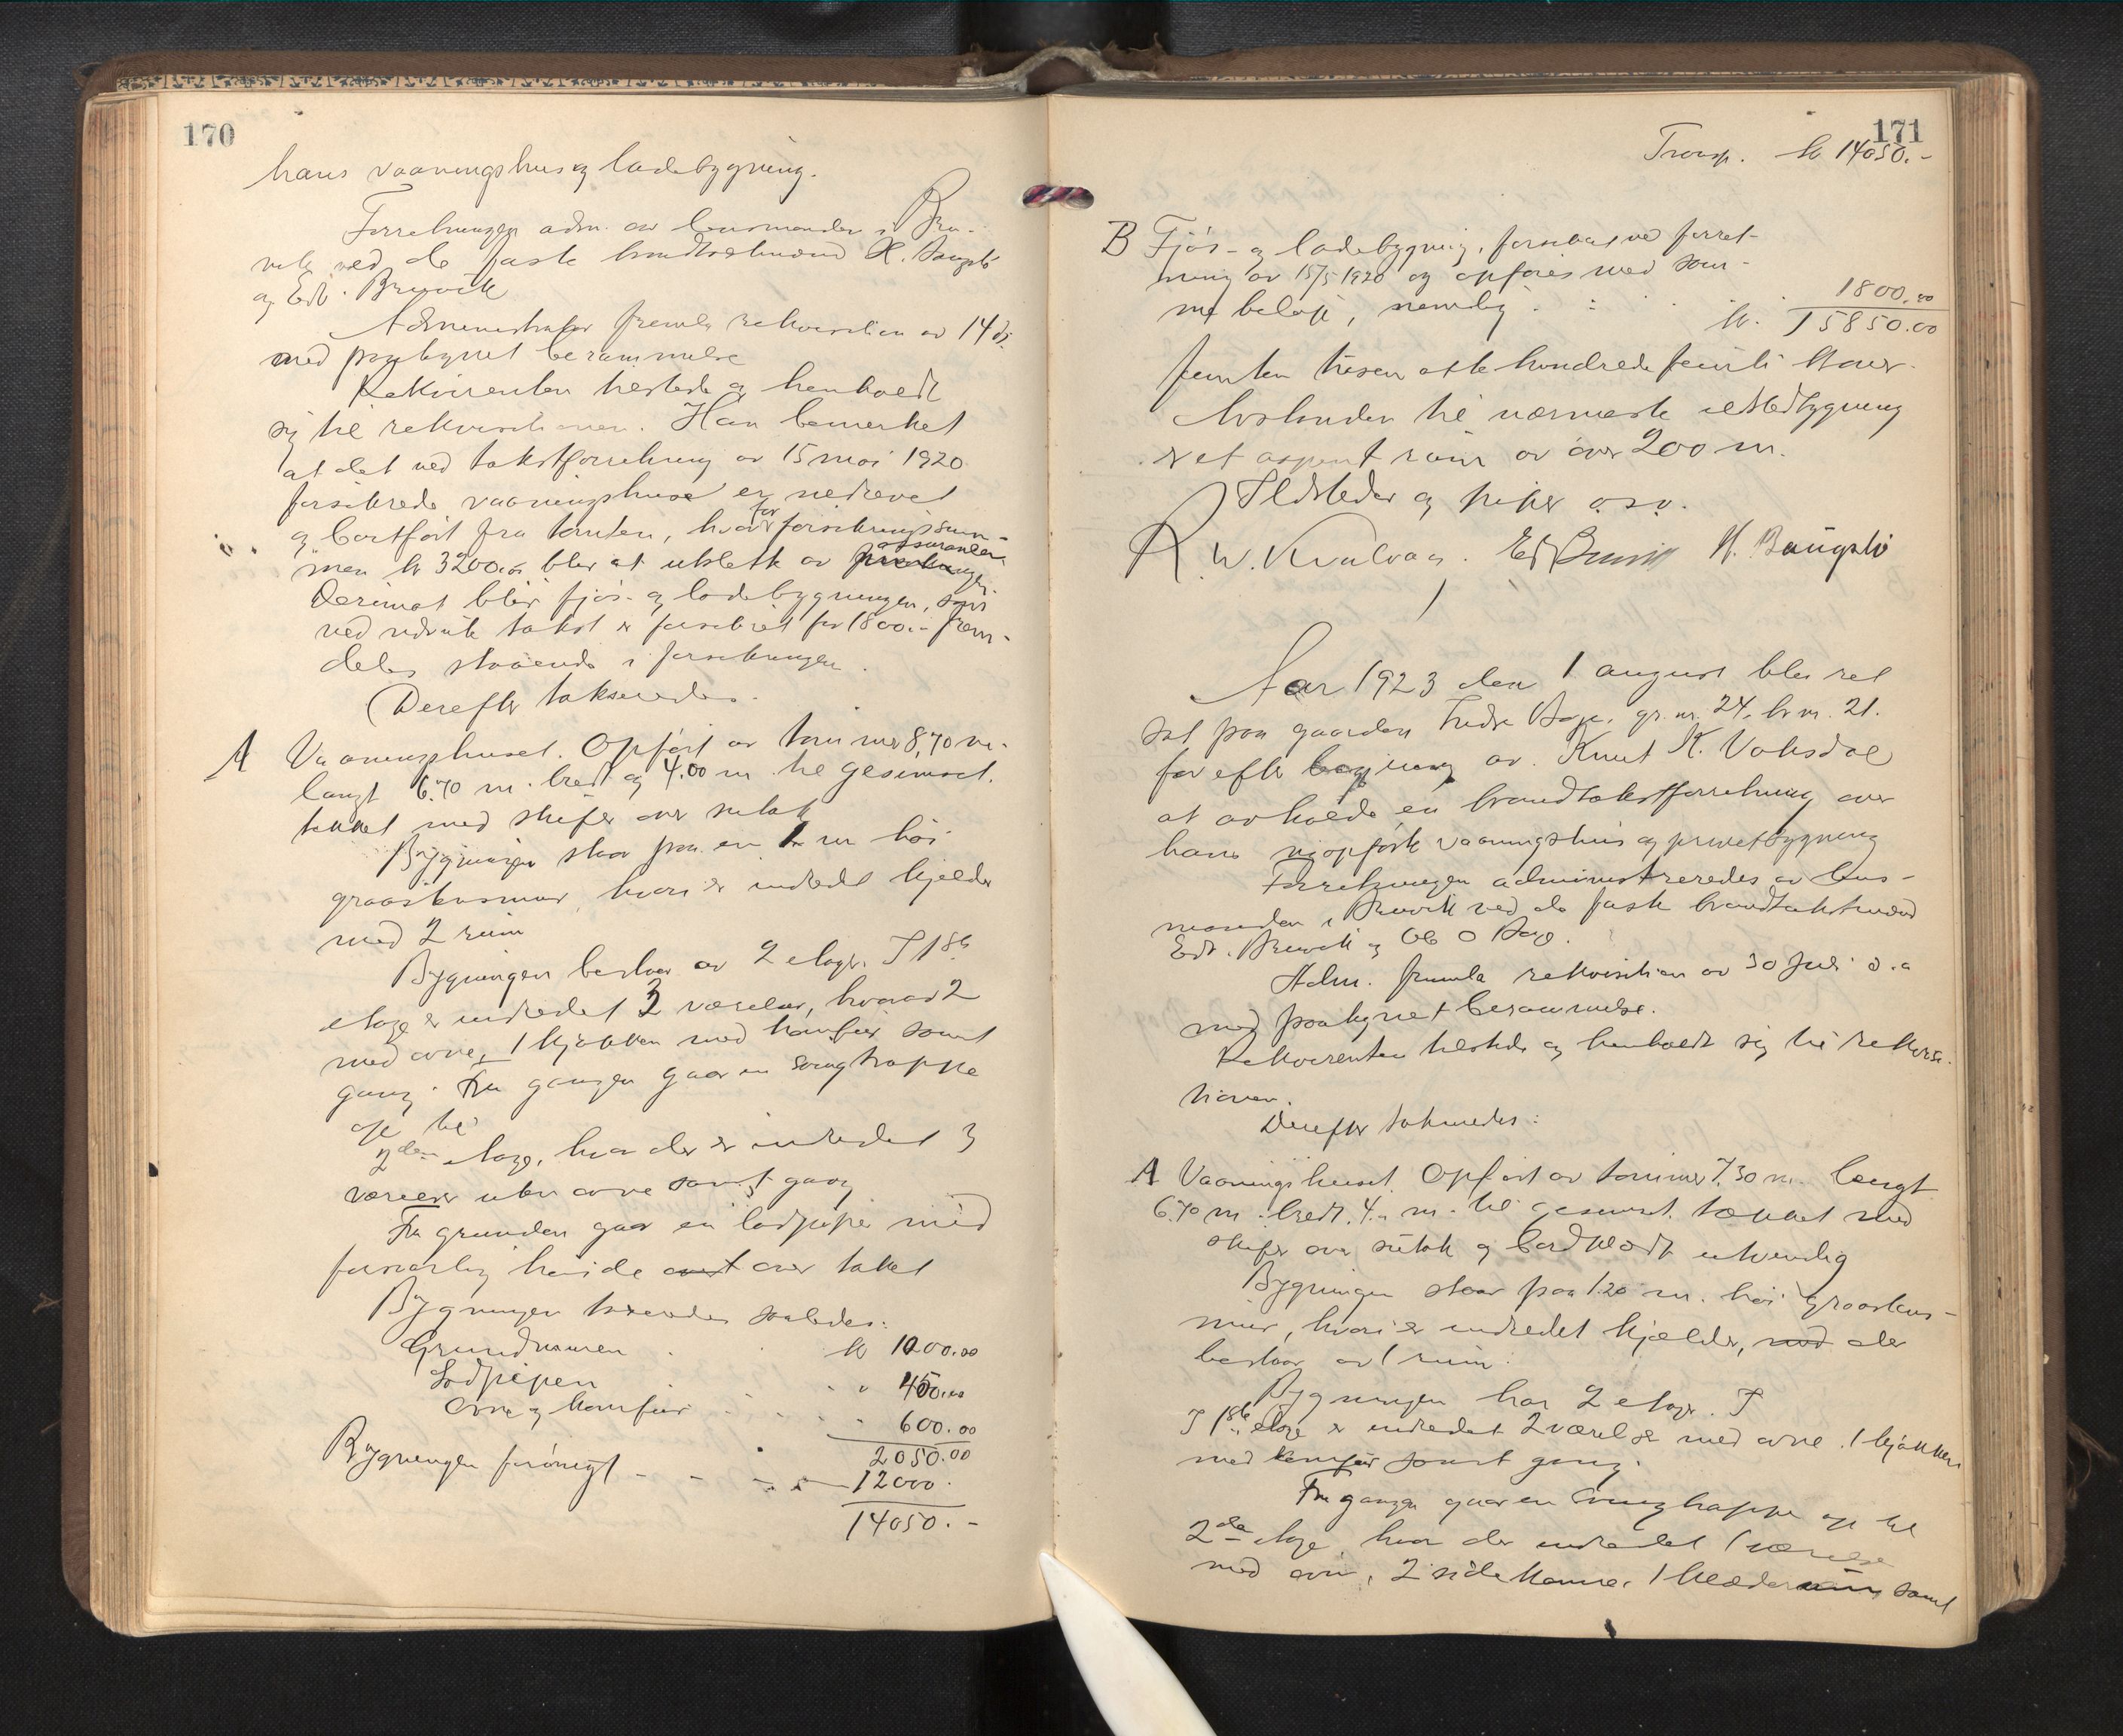 170
hans vaaningshus og ladebygning.
Forretningen adm. av lensmanden i Bru-
vik ved de faste brandtakstmænd H. Baugstø
og Edv. Bruvik
Administrator fremla rekvisition av 14 ds.
med paategnet berammelse
Rekvirenten tilstede og henholdt
sig til rekvisitionen. Han bemerket
at det ved takstforretning av 15 mai 1920
forsikrede vaaningshuse er nedrevet
og bortført fra tomten, hvorfor forsikringssum-
men kr 3200.00 blir at utslette av assurancen
Derimot blir fjøs- og ladebygningen, som
ved nævnte takst er forsikret for 1800.- frem-
deles staaende i forsikringen.
Derefter takseredes.
A Vaaningshuset. Opført av tømmer 8,70 m.
langt 6.70 m. bredt og 4.00 m til gesimset.
tækket med skifer over sutak
Bygningen staar paa en 1 m høi
graastensmur, hvori er indredet kjelder
med 2 rum
Bygningen bestaar av 2 etager. I 1ste
etage er indredet 3 værelser, hvorav 2
med ovne, 1 kjøkken med komfur samt
gang. Fra gangen gaar en svingtrappe
op til
2den etage, hvor der er indredet 3
værelser uten ovne samt gang
Fra grunden gaar en lodpipe med
forsvarlig høide over taket
Bygningen takseredes saaledes:
Grundmuren kr 1000.00
Lodpipen " 450.00
Ovne og komfur 600.00
2050.00
Bygningen forøvrigt - - - 12000.
14050.-
171
Transp. kr 14050.-
B Fjøs- og ladebygning, forsikret ved forret-
ning av 15/5 1920 og opføres med sam-
me beløp, nemlig 1800.00
kr. 15850.00
femten tusen otte hundrede femti kroner.
Avstanden til nærmeste ildstedbygning
er et aapent rum av over 200 m.
Ildsteder og piper o.s.v.
R. W. Kvalvaag. Edv Bruvik H. Baugstø
Aar 1923 den 1 august blev ret
sat paa gaarden Indre Boge, gr. nr. 24, br. nr. 21.
for efter begjæring av Knut K. Vaksdal
at avholde en brandtakstforretning over
hans nyopførte vaaningshus og privetbygning
Forretningen administreredes av lens-
manden i Bruvik ved de faste brandtakstmænd
Edv. Bruvik og Ole O Boge.
Adm. fremla rekvisition av 30 Juli d.a
med paategnet berammelse.
Rekvirenten tilstede og henholdt sig til rekvisi-
tionen.
Derefter takseredes:
A Vaaningshuset. Opført av tømmer 7.30 m. langt
6.70 m. bredt. 4.- m. til gesimset. tækket med
skifer over sutak og bordklædt utvendig
Bygningen staar paa 1.20 m. høi graastens-
mur, hvori er indredet kjælder, med der
bestaar av 1 rum.
Bygningen har 2 etager. I
I 1ste etage er indredet 2 værelser med ovne. 1 kjøkken
med komfur samt gang.
Fra gangen gaar en svingtrappe op til
2de etage, hvor der indredet 1 værelse
med ovn, 2 sidekamre, 1 klæderum samt